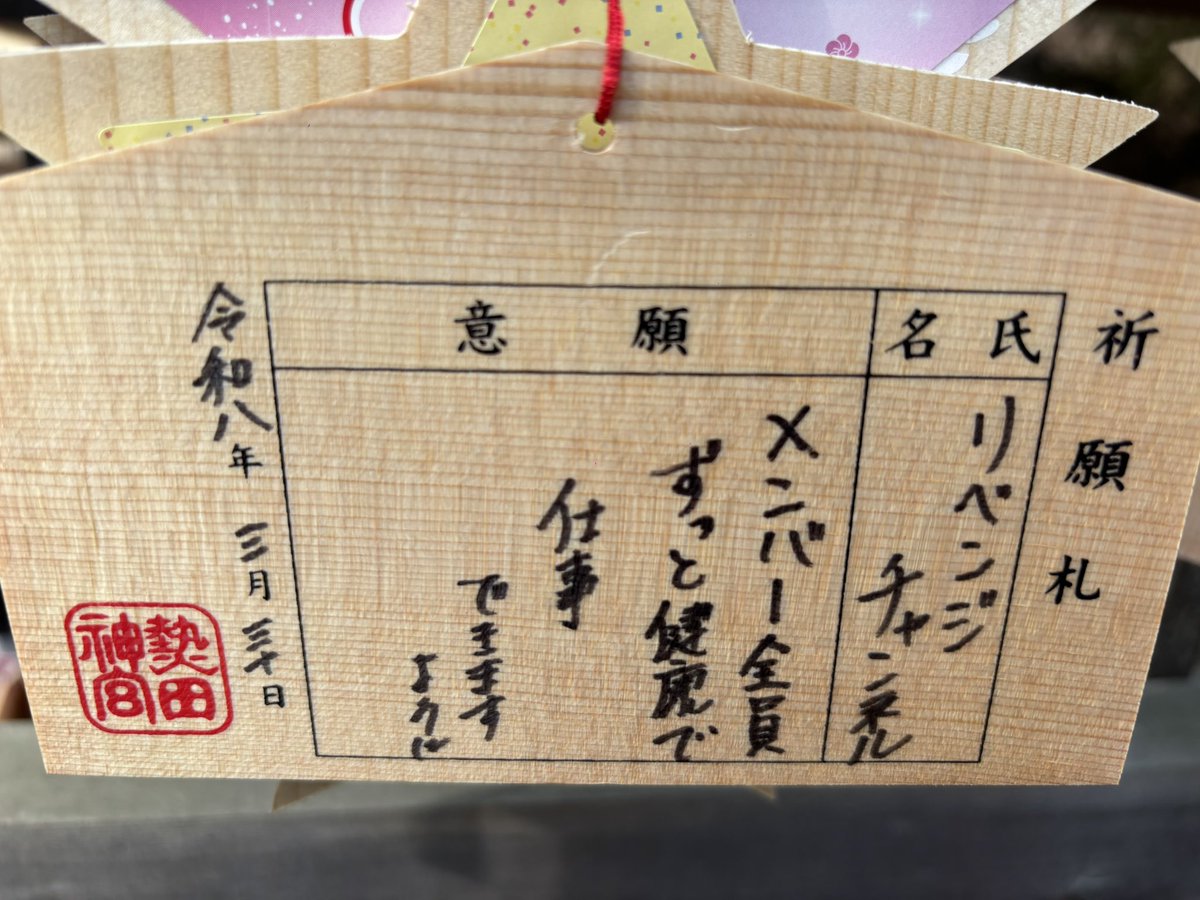 祈願札
氏名
リベンジ
チャンネル
願意
メンバー全員
ずっと健康で
仕事
できます
ように
令和八年 三月 三十日
熱田
神宮